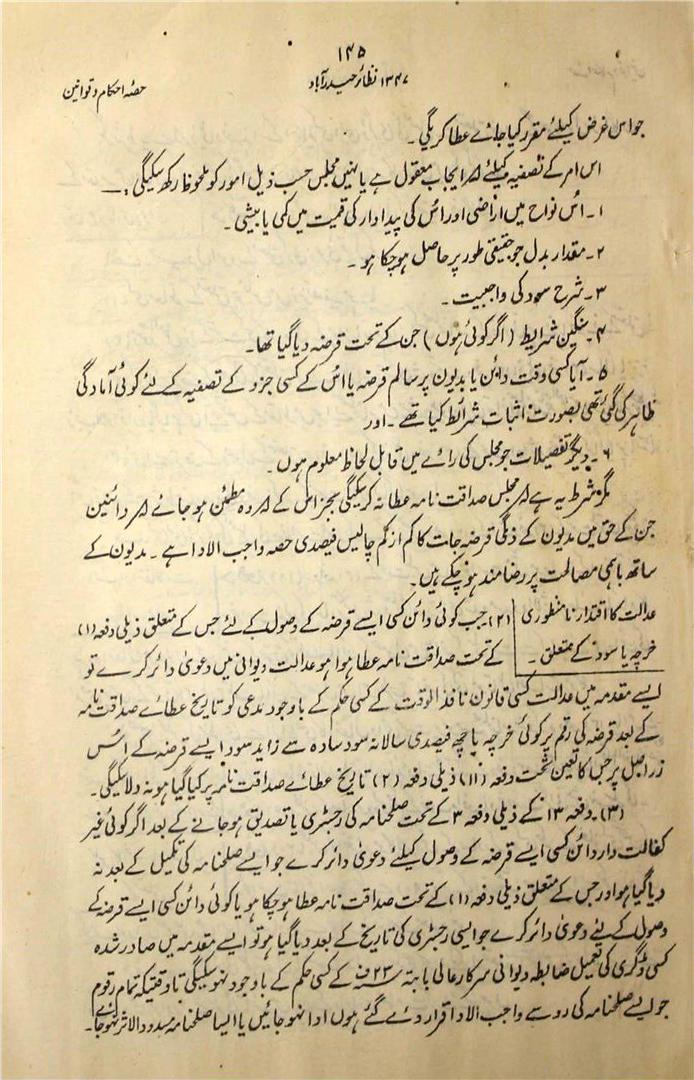 ۱۴۵
۱۳۴۷ نظائر حیدرآباد
حصّہ احکام و قوانین
جو اس غرض کیلئے مقرر کیا جائے عطا کریگی۔
اس امر کے تصفیہ کیلئے کہ ایجاب معقول ہے یا نہیں مجلس حسب ذیل امور کو ملحوظ رکھ سکیگی:۔
۱۔ اُس نواح میں اراضی اور اس کی پیداوار کی قیمت میں کمی یا بیشی۔
۲۔ مقدار بدل جو حقیقی طور پر حاصل ہو چکا ہو۔
۳۔ شرح سود کی واجبیت۔
۴۔ سنگین شرایط (اگر کوئی ہوں) جن کے تحت قرضہ دیا گیا تھا۔
۵۔ آیا کسی وقت دائن یا مدیون پر سالم قرضہ یا اس کے کسی جزو کے تصفیہ کے لئے کوئی آمادگی
ظاہر کی گئی تھی بصورت اثبات شرائط کیا تھے۔ اور
۶۔ دیگر تفصیلات جو مجلس کی رائے میں قابل لحاظ معلوم ہوں۔
مگر شرط یہ ہے کہ مجلس صداقت نامہ عطا نہ کر سکیگی بجز اس کے کہ وہ مطمئن ہو جائے کہ دائنین
جن کے حق میں مدیون کے ذمگی قرضہ جات کا کم از کم چالیس فیصدی حصہ واجب الادا ہے۔ مدیون کے
ساتھ باہمی مصالحت پر رضامند ہو چکے ہیں۔
عدالت کا اقتدار نامنظوری
خرچہ یا سود کے متعلق۔
(۲)۔ جب کوئی دائن کسی ایسے قرضہ کے وصول کے لئے جس کے متعلق ذیلی دفعہ (۱)
کے تحت صداقت نامہ عطا ہوا ہو عدالت دیوانی میں دعویٰ دائر کرے تو
ایسے مقدمہ میں عدالت کسی قانون نافذ الوقت کے کسی حکم کے باوجود مدعی کو تاریخ عطائے صداقت نامہ
کے بعد قرضہ کی رقم پر کوئی خرچہ یا چھ فیصدی سالانہ سود سادہ سے زاید سود ایسے قرضہ کے اُس
زر اصل پر جس کا تعین تحت دفعہ (۱۱) ذیلی دفعہ (۲) تاریخ عطائے صداقت نامہ پر کیا گیا ہو نہ دلا سکیگی۔
(۳)۔ دفعہ ۱۳ کے ذیلی دفعہ ۳ کے تحت صلحنامہ کی رجسٹری یا تصدیق ہو جانے کے بعد اگر کوئی غیر
کفالت دار دائن کسی ایسے قرضہ کے وصول کیلئے دعویٰ دائر کرے جو ایسے صلحنامہ کی تکمیل کے بعد نہ
دیا گیا ہو اور جس کے متعلق ذیلی دفعہ (۱) کے تحت صداقت نامہ عطا ہو چکا ہو یا کوئی دائن کسی ایسے قرضہ کے
وصول کے لئے دعویٰ دائر کرے جو ایسی رجسٹری کی تاریخ کے بعد دیا گیا ہو تو ایسے مقدمہ میں صادر شدہ
کسی ڈگری کی تعمیل ضابطہ دیوانی سرکار عالی بابتہ ۱۳۲۳ف کے کسی حکم کے باوجود نہو سکیگی تا وقتیکہ تمام رقوم
جو ایسے صلحنامہ کی رو سے واجب الادا قرار دئے گئے ہوں ادا نہو جائیں یا ایسا صلحنامہ مسدود الاثر نہو جائے۔